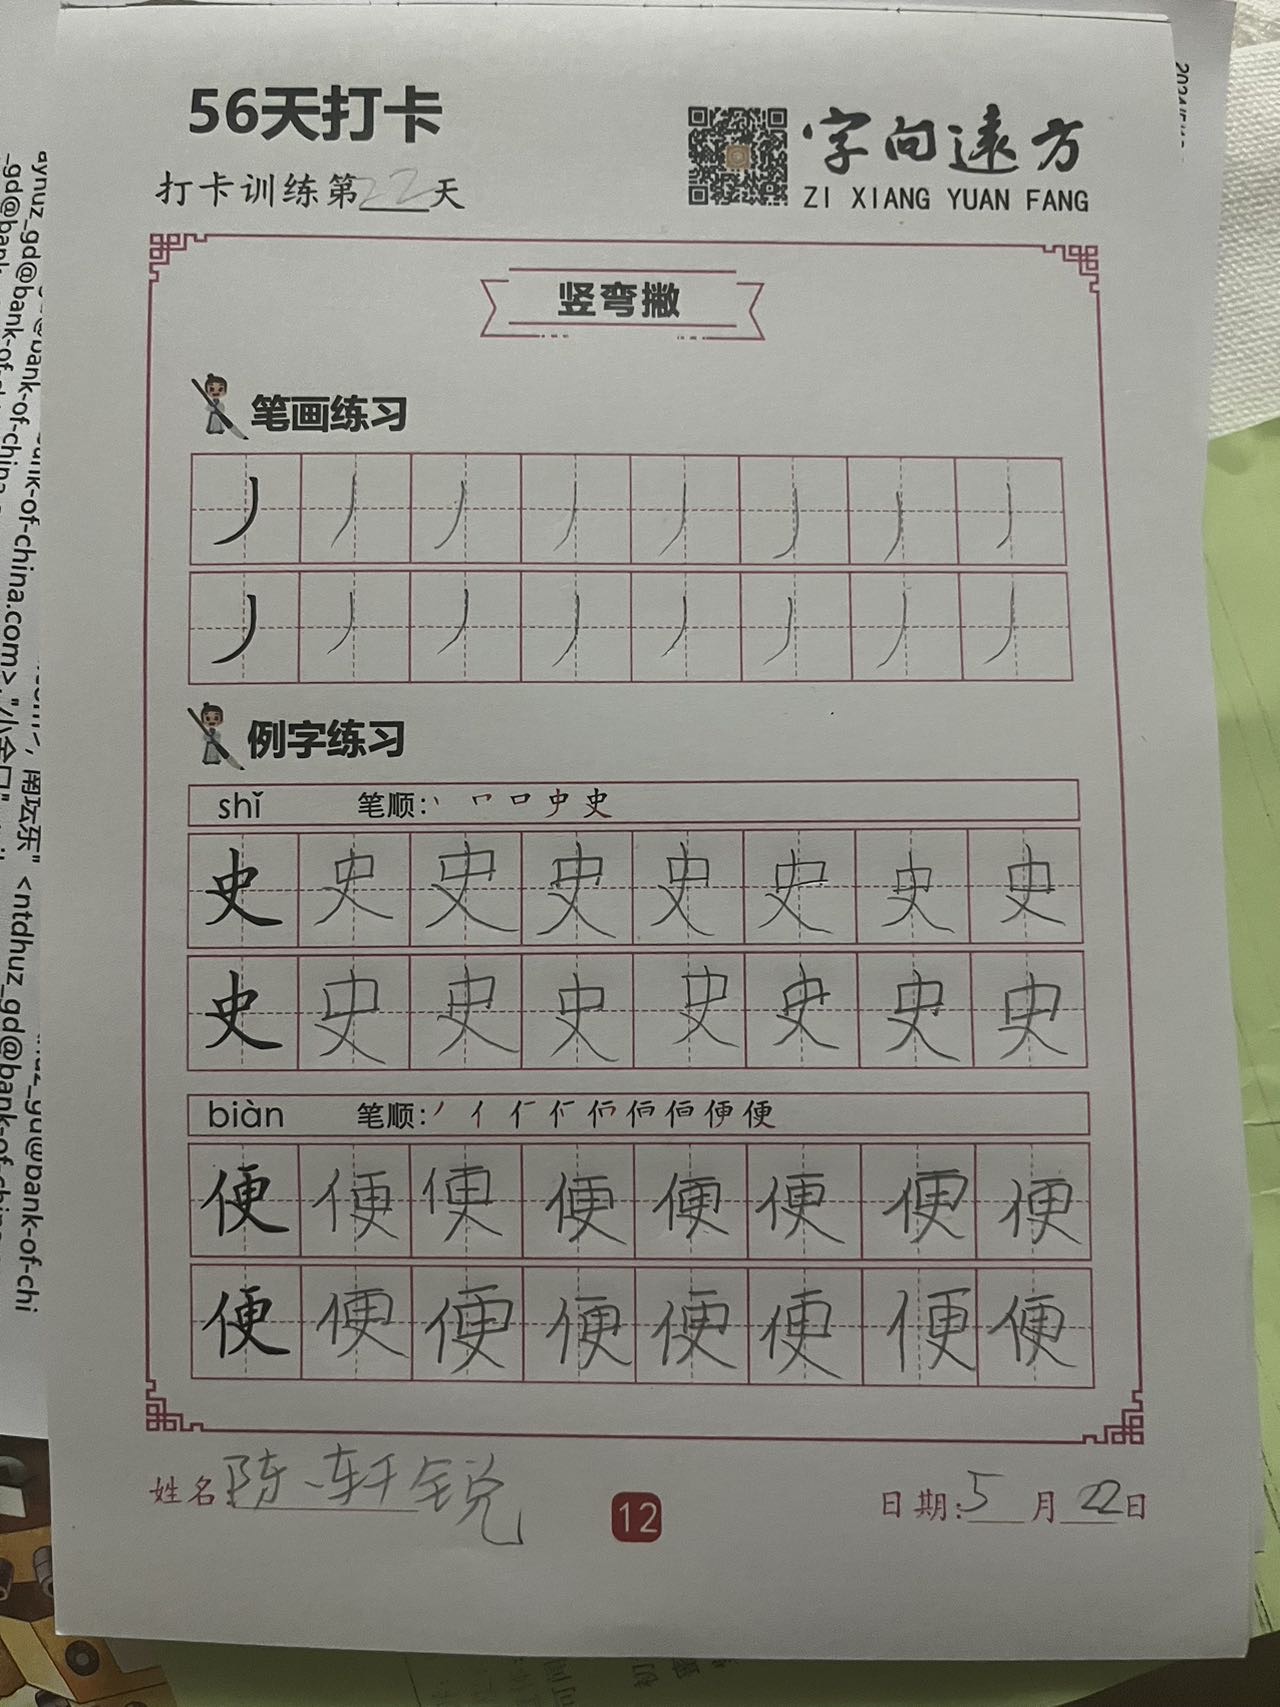 56天打卡
打卡训练第22天
字向遠方
ZI XIANG YUAN FANG
竖弯撇
笔画练习
丿 丿 丿 丿 丿 丿 丿 丿
丿 丿 丿 丿 丿 丿 丿 丿
例字练习
shǐ 笔顺:
史 史 史 史 史 史 史 史
史 史 史 史 史 史 史 史
biàn 笔顺:
便 便 便 便 便 便 便 便
便 便 便 便 便 便 便 便
姓名:陈轩锐
12
日期:5月22日